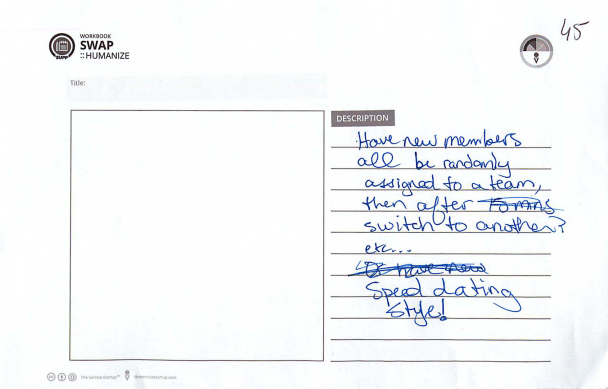 WORKBOOK
SWAP
::HUMANIZE
45
Title:
DESCRIPTION
Have new members
all be randomly
assigned to a team,
then after 15 mins
switch to another?
etc...
Or have new
Speed dating
style!
The Service Startup™